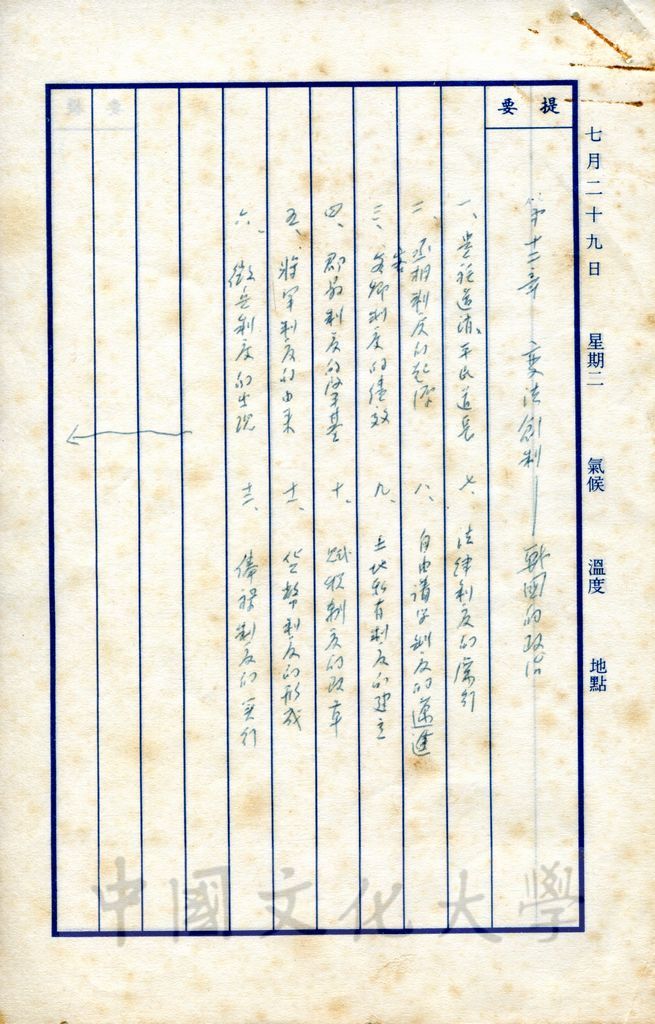 七月二十九日 星期二 氣候 溫度 地點
提要
第十二章 变法創制——戰國的政治
一、貴族道消、平民道長
二、丞相制度的起源
三、客卿制度的績效
四、郡縣制度的
五、將軍制度的由來
六、徵兵制度的出現
七、法律制度的厲行
八、自由講學制度的
九、土地私有制度的建立
十、賦稅制度的改革
十一、貨幣制度的形成
十二、俸祿制度的实行
中國文化大學